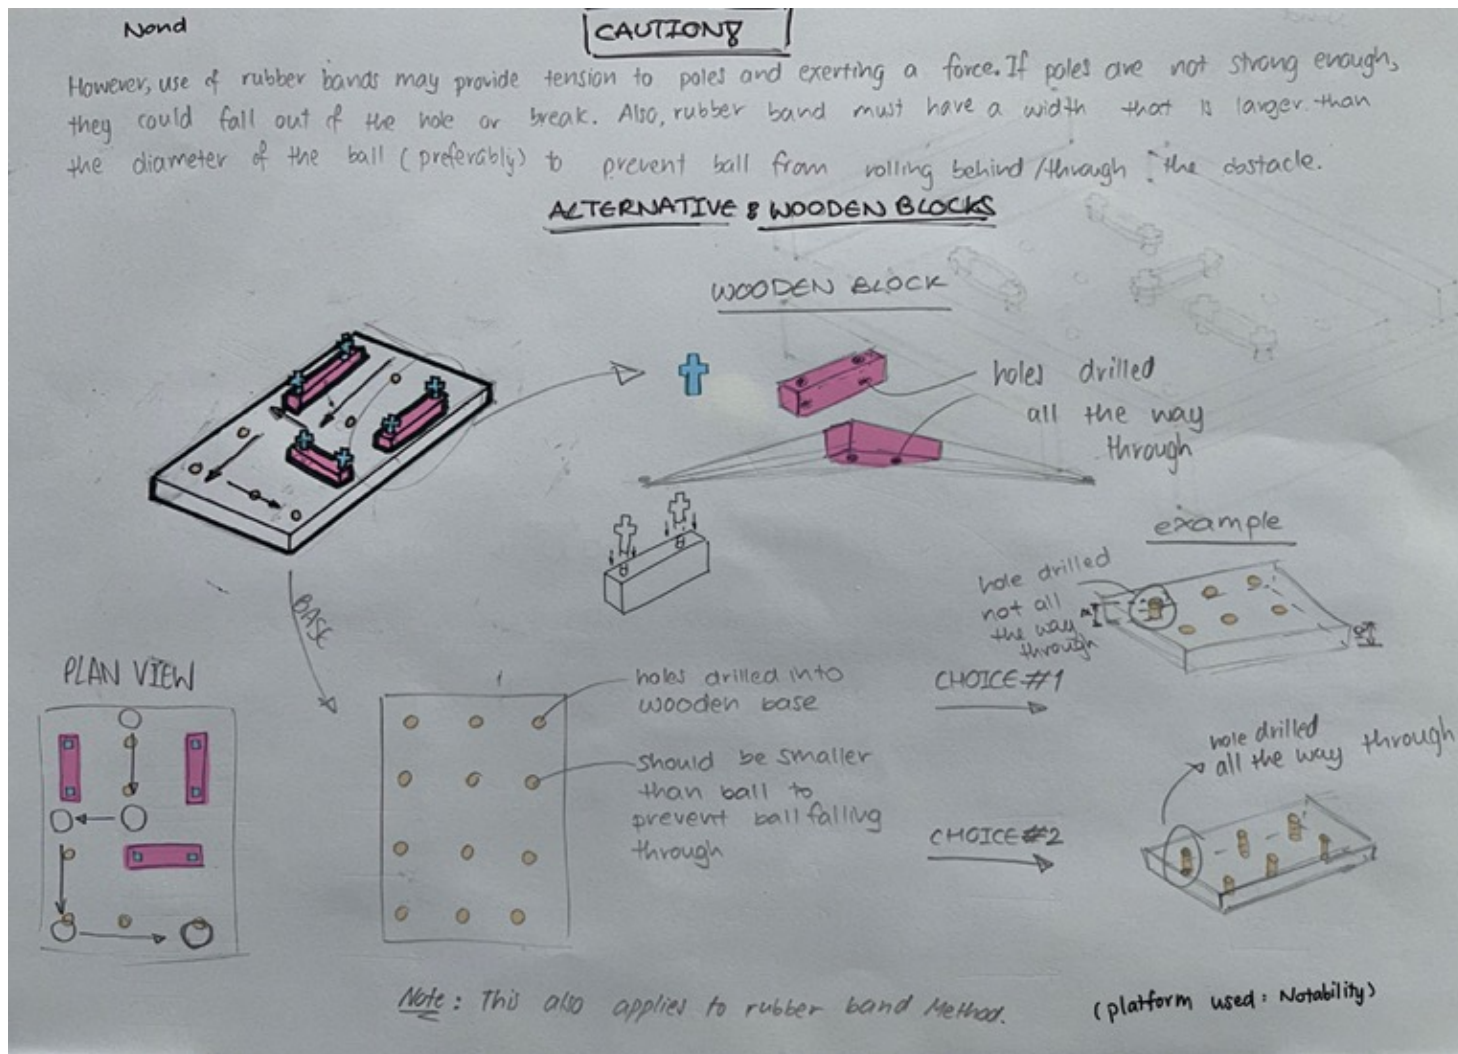 Nond
CAUTION:
However, use of rubber bands may provide tension to poles and exerting a force. If poles are not strong enough,
they could fall out of the hole or break. Also, rubber band must have a width that is larger than
the diameter of the ball (preferably) to prevent ball from rolling behind/through the obstacle.
ALTERNATIVE : WOODEN BLOCKS
WOODEN BLOCK
holes drilled
all the way
through
example
hole drilled
not all
the way
through
BASE
PLAN VIEW
holes drilled into
wooden base
CHOICE #1
should be smaller
than ball to
prevent ball falling
through
hole drilled
all the way through
CHOICE #2
Note: This also applies to rubber band Method.
(platform used: Notability)